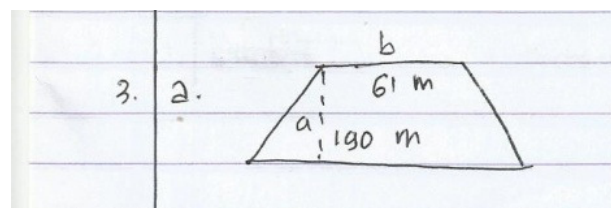 b
3. a. 61 m
a 190 m